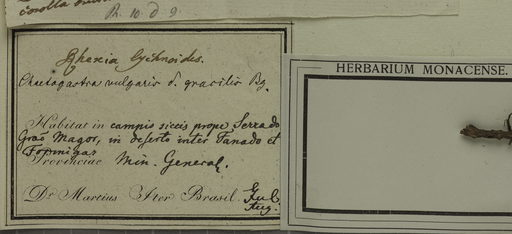 corolla
Rhexia lychnoides.
Chaetogastra vulgaris δ. gracilis
HERBARIUM MONACENSE.
Habitat in campis siccis prope Serra do
Grao Magor, in deserto inter Tanado et
Formigas
Provinciae Min. General.
Dr Martius Iter Brasil. Jul.
Aug.